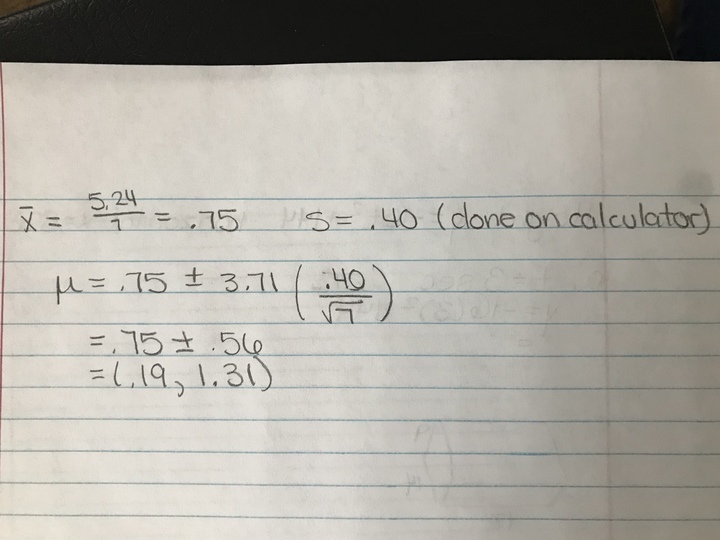 x̄ = 5.24/7 = .75 S = .40 (done on calculator)
μ = .75 ± 3.71 (.40/√7)
= .75 ± .56
= (.19, 1.31)